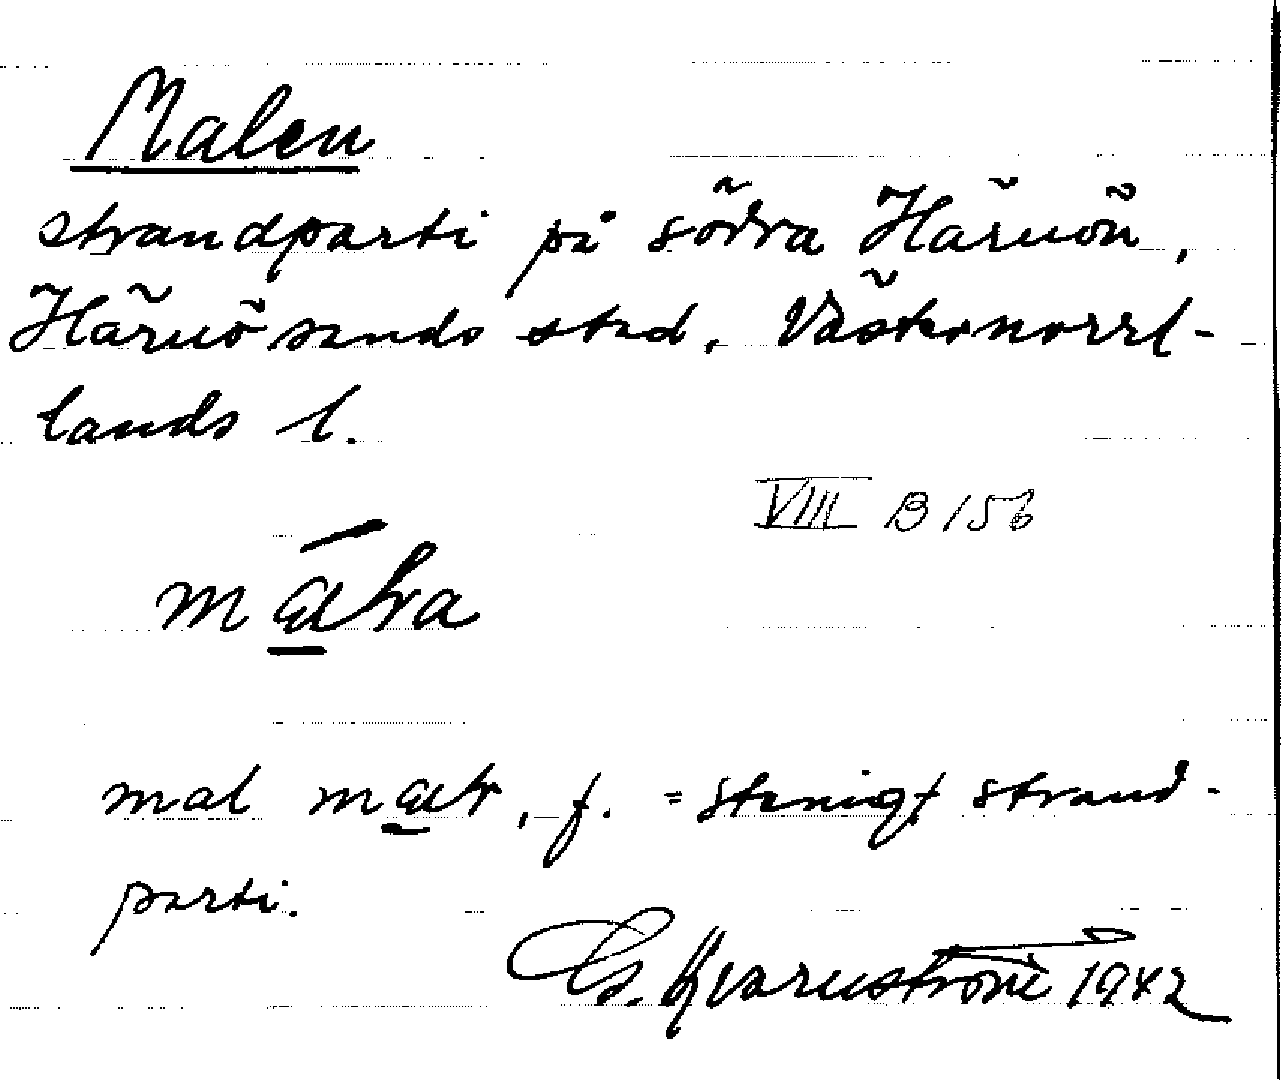 Malen
strandparti på södra Härnön,
Härnösands stad, Västernorrl-
lands l.
VIII B 156
mal
f. = stenigt strand-
parti.
G. Kvarnström 1942